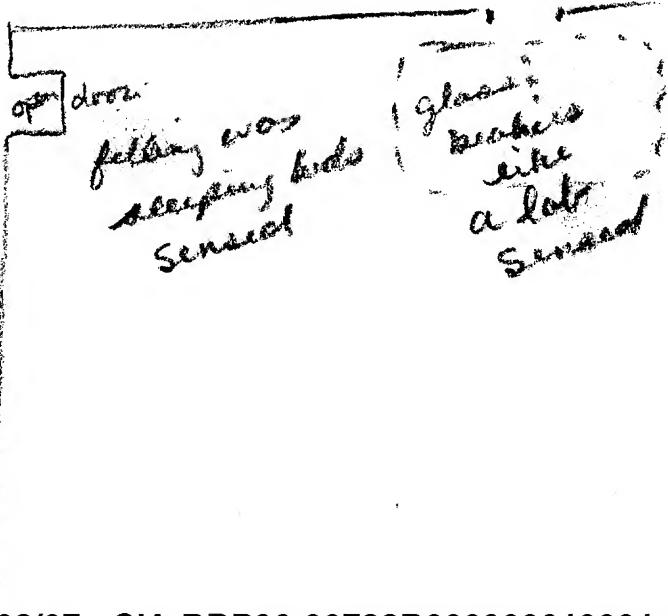 open door
feeling was
sleeping beds
Sensed
glass:
beakers
like
a lab
Sensed